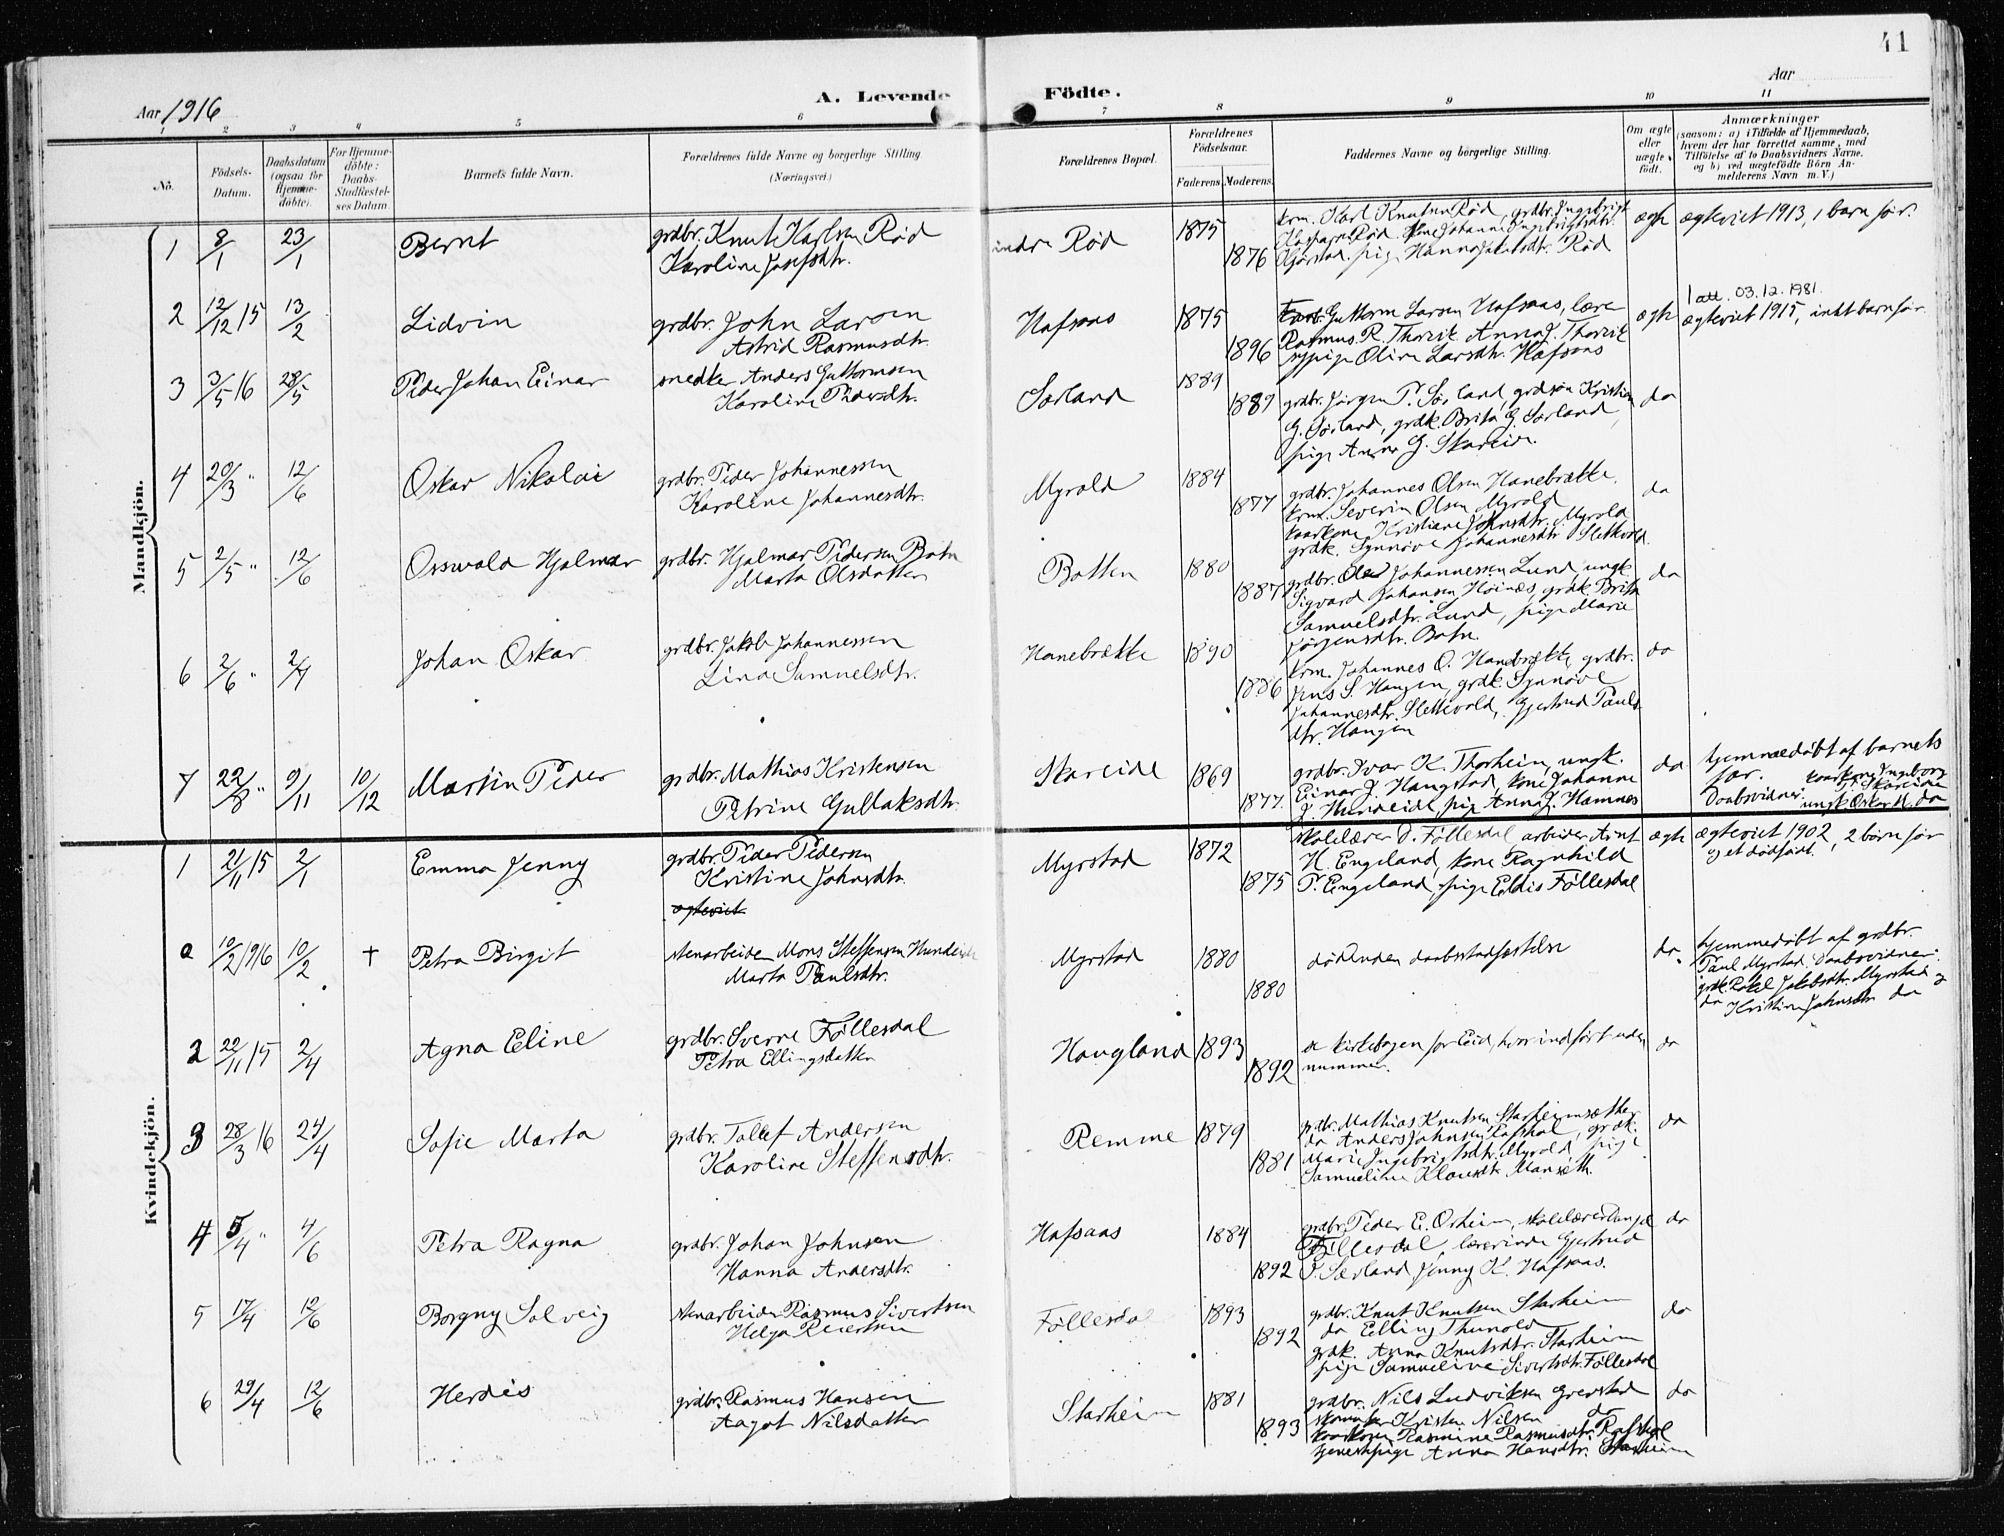 41
Aar 1916
A. Levende Födte.
Aar
1 2 3 4 5 6 7 8 9 10 11
No.
Födsels-Datum.
Daabsdatum (ogsaa for Hjemme-döbte).
For Hjemme-döbte: Daabs-Stadfæstel-ses Datum.
Barnets fulde Navn.
Forældrenes fulde Navne og borgerlige Stilling. (Næringsvei.)
Forældrenes Bopæl.
Forældrenes Födselsaar.
Faderens. Moderens.
Faddernes Navne og borgerlige Stilling.
Om ægte eller uægte födt.
Anmærkninger
(saasom: a) i Tilfælde af Hjemmedaab, hvem der har forrettet samme, med Tilföielse af to Daabsvidners Navne, og b) ved uægtefödte Börn An-melderens Navn m. V.)
Mandkjön.
1 8/1 23/1 Bernt
grdbr. Knut Karlsen Rød
Karoline Josefsdtr.
indre Rød 1875 1876
krm. Karl Knutsen Rød, grdbr. Ingebrigt
Rød. kone Johanne Ingebrigtsdtr.
pige Hanna Jakobsdtr. Rød
ægte
ægteviet 1913, 1 barn før.
2 12/12 15 13/2 Lidvin
grdbr. John Larsen
Astrid Rasmusdtr.
Hafsaas 1875 1896
Guttorm Larsen Hafsaas, lærer
Rasmus R. Thorvik Anna J. Thorvik
sypige Oline Larsdtr. Hafsaas
ægte
1 att. 03.12.1981.
ægteviet 1915, intet barn før.
3 3/5 16 28/5 Peder Johan Einar
snedker Anders Guttormsen
Karoline Pedersdtr.
Sørland 1889 1889
grdbr. Jørgen P. Sørland, grdsøn Kristian
G. Sørland, grdk. Brita G. Sørland,
pige Anna G. Skareide.
do
4 20/3 " 12/6 Oskar Nikolai
grdbr. Peder Johannessen
Karoline Johannesdtr.
Myrold 1884 1877
grdbr. Johannes Olsen Hanebrække,
krm. Severin Olsen Myrold
kaarkone Kristiane Johnsdtr. Myrold
grdk. Synnøve Johannesdtr. Slettevold
do
5 2/5 " 12/6 Osswald Hjalmar
grdbr. Hjalmar Pedersen Botn
Marta Olsdatter
Botten 1880 1887
grdbr. Ole Johannessen Lund, ungk.
Sigvard Johansen Høinæs, grdk. Brita
Samuelsdtr. Lund, pige Marie
Jørgensdtr. Botn.
do
6 2/6 " 2/7 Johan Oskar
grdbr. Jakob Johannessen
Lina Samuelsdtr.
Hanebrække 1890 1886
krm. Johannes O. Hanebrække, grdbr.
Jens S. Haugen, grdk. Synnøve
Johannesdtr. Slettevold, Gjertrud Pauls
dtr. Haugen
do
7 22/8 " 9/11 10/12 Martin Peder
grdbr. Mathias Kristensen
Petrine Gullaksdtr.
Skareide 1869 1877.
grdbr. Ivar K. Thorheim, ungk.
Einar J. Haugstad, kone Johanne
J. pige Anna J. Hamnes
do
hjemmedøbt af barnets
far. kaarkone Ingeborg
Daabsvidner: P. Skareide
ungk. Oskar M. do
Kvindekjön.
1 21/11 15 2/1 Emma Jenny
grdbr. Peder Pedersen
Kristine Johnsdtr.
ægteviet
Myrstad 1872 1875
skolelærer D. Føllesdal arbeider Arnt
H. Engeland, kone Ragnhild
P. Engeland, pige Eldis Føllesdal
ægte
ægteviet 1902, 2 børn før
og et dødfødt.
0 10/2 1916 10/2 † Petra Birgit
stenarbeider Mons Steffensen Hundeide
Marta Paulsdtr.
Myrstad 1880 1880
død uden daabsstadfæstelse
do.
hjemmedøbt af grdbr.
Paul Myrstad. Daabsvidner:
grdk. Rakel Jakobsdtr. Myrstad og
do Kristine Johnsdtr. do
2 22/11 15 2/4 Agna Eline
grdbr. Sverre Føllesdal
Petra Ellingsdatter
Haugland 1893 1892
se kirkebogen for Eid, hvor indført uden
nummer.
do
3 28/3 16 24/4 Sofie Marta
grdbr. Tollef Andersen
Karoline Steffensdtr.
Remme 1879 1881
grdbr. Mathias Knutsen Starheimsæther
do Anders Johnsen Rafshol, grdk.
Marie Ingebrigtsdtr. Myrold, pige
Samueline Klausdtr. Manseth.
do
4 5/4 " 4/6 Petra Ragna
grdbr. Johan Johnsen
Hanna Andersdtr.
Hafsaas 1884 1892
grdbr. Peder E. Osheim, skolelærer Daniel
Føllesdal, lærerinde Gjertrud
P. Sørland Jenny K. Hafsaas.
do
5 17/4 12/6 Borgny Solveig
stenarbeider Rasmus Sivertsen
Helga Reiersen
Føllesdal 1893 1892
grdbr. Knut Knutsen Starheim
do Elling Thunold
grdk. Anna Knutsdtr. Starheim
pige Samueline Sivertsdtr. Føllesdal
do
6 29/4 12/6 Herdis
grdbr. Rasmus Hansen
Aagot Nilsdatter
Starheim 1881 1893
grdbr. Nils Ludviksen Grevstad
skomaker Kristen Nilsen do
kaarkone Rasmine Rasmusdtr. Rafshol
tjenestepige Anna Hansdtr. Starheim
do